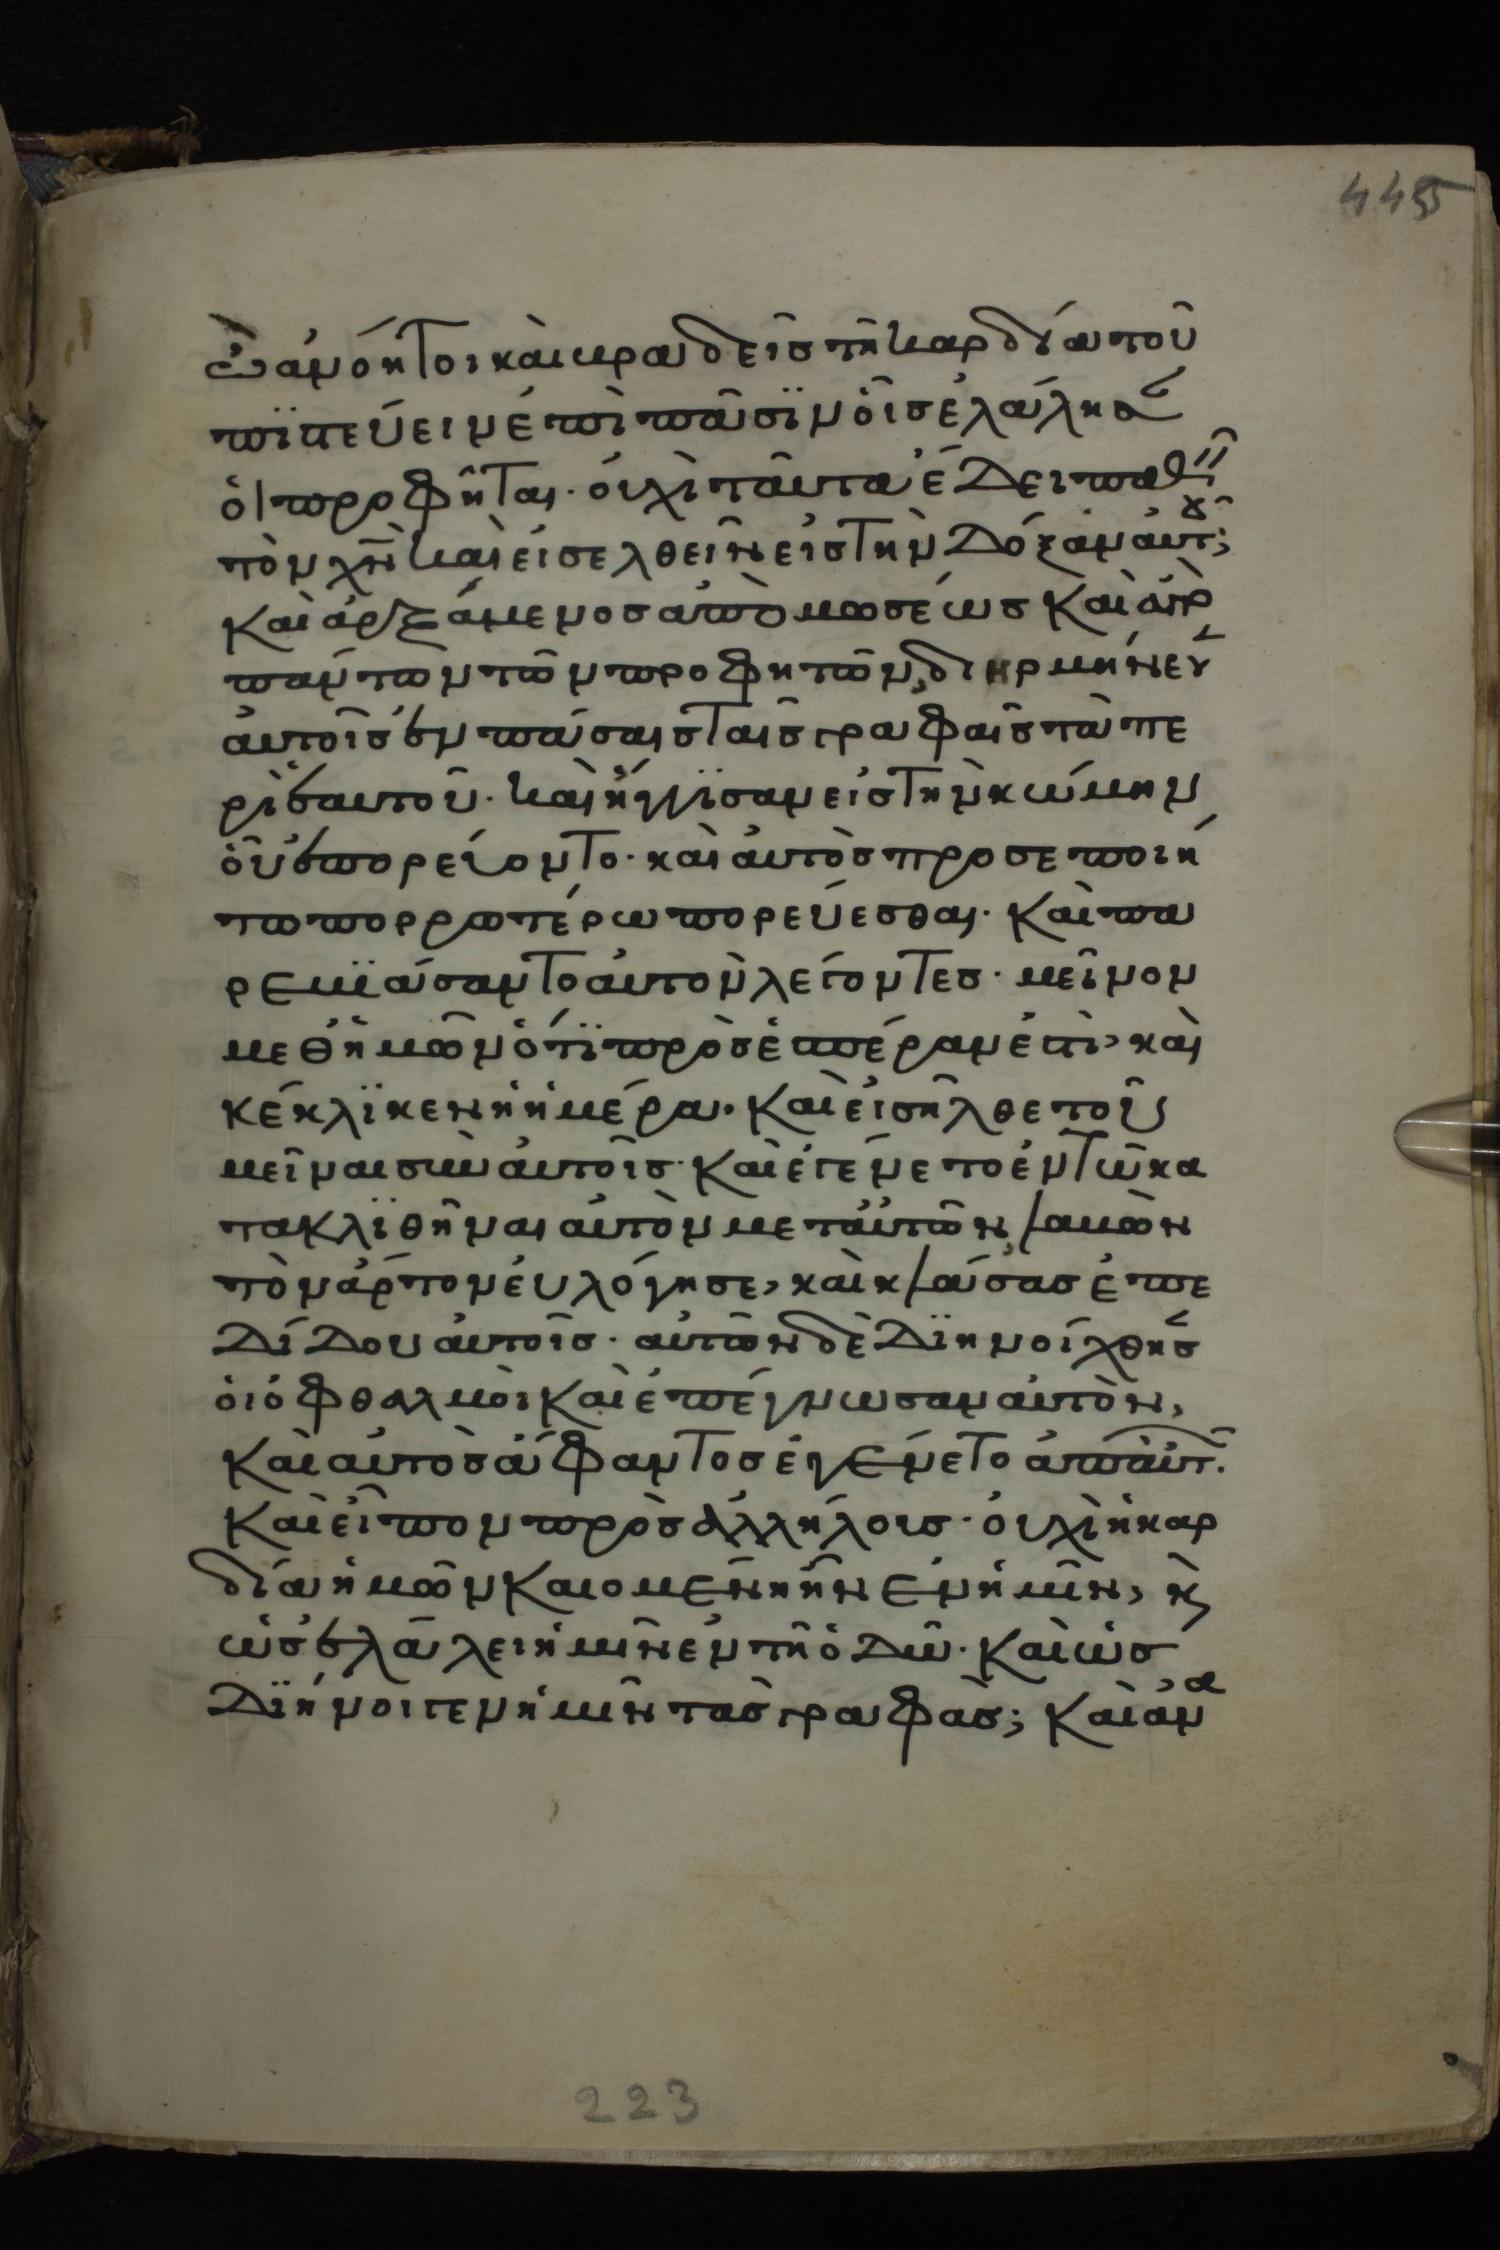 445
ὦ ἀνόητοι καὶ βραδεῖς τῆ καρδία τοῦ
πϊστεύειν ἐπὶ πᾶσϊν οἷς ἐλάλησαν
οἱ προφῆται· οὐχὶ ταῦτα ἔδει παθεῖν
τὸν χν καὶ εἰσελθεῖν εἰς τὴν δόξαν αὐτοῦ;
καὶ ἀρξάμενος ἀπὸ μωσέως καὶ ἀπὸ
πάντων τῶν προφητῶν, διηρμήνευεν
αὐτοῖς ἐν πάσαις ταῖς γραφαῖς τὰ πε
ρὶ ἑαυτοῦ· καὶ ἤγγϊσαν εἰς τὴν κώμην
οὗ ἐπορεύοντο· καὶ αὐτὸς προσεποιή
το πορρωτέρω πορεύεσθαι· καὶ πα
ρεβϊάσαντο αὐτὸν λέγοντες· μεῖνον
μεθ ἡμῶν ὅτϊ πρὸς ἑσπέραν ἐστὶ, καὶ
κέκλϊκεν ἡ ἡμέρα. καὶ εἰσῆλθε τοῦ
μεῖναι σὺν αὐτοῖς· καὶ ἐγένετο ἐν τῶ κα
τακλϊθῆναι αὐτὸν μετ αὐτῶν λαβὼν
τὸν ἄρτον εὐλόγησε, καὶ κλάσας ἐπε
δίδου αὐτοῖς· αὐτῶν δὲ δϊηνοίχθησαν
οἱ ὀφθαλμοὶ καὶ ἐπέγνωσαν αὐτὸν,
καὶ αὐτὸς ἄφαντος ἐγένετο ἀπ αὐτῶν.
καὶ εἶπον πρὸς ἀλλήλους· οὐχὶ ἡ καρ
δία ἡμῶν καιομένη ἦν ἐν ἡμῖν, κ
ὡς ἐλάλει ἡμῖν ἐν τῆ ὁδῶ· καὶ ὡς
δϊήνοιγεν ἡμῖν τὰς γραφὰς; καὶ ἀνα
223